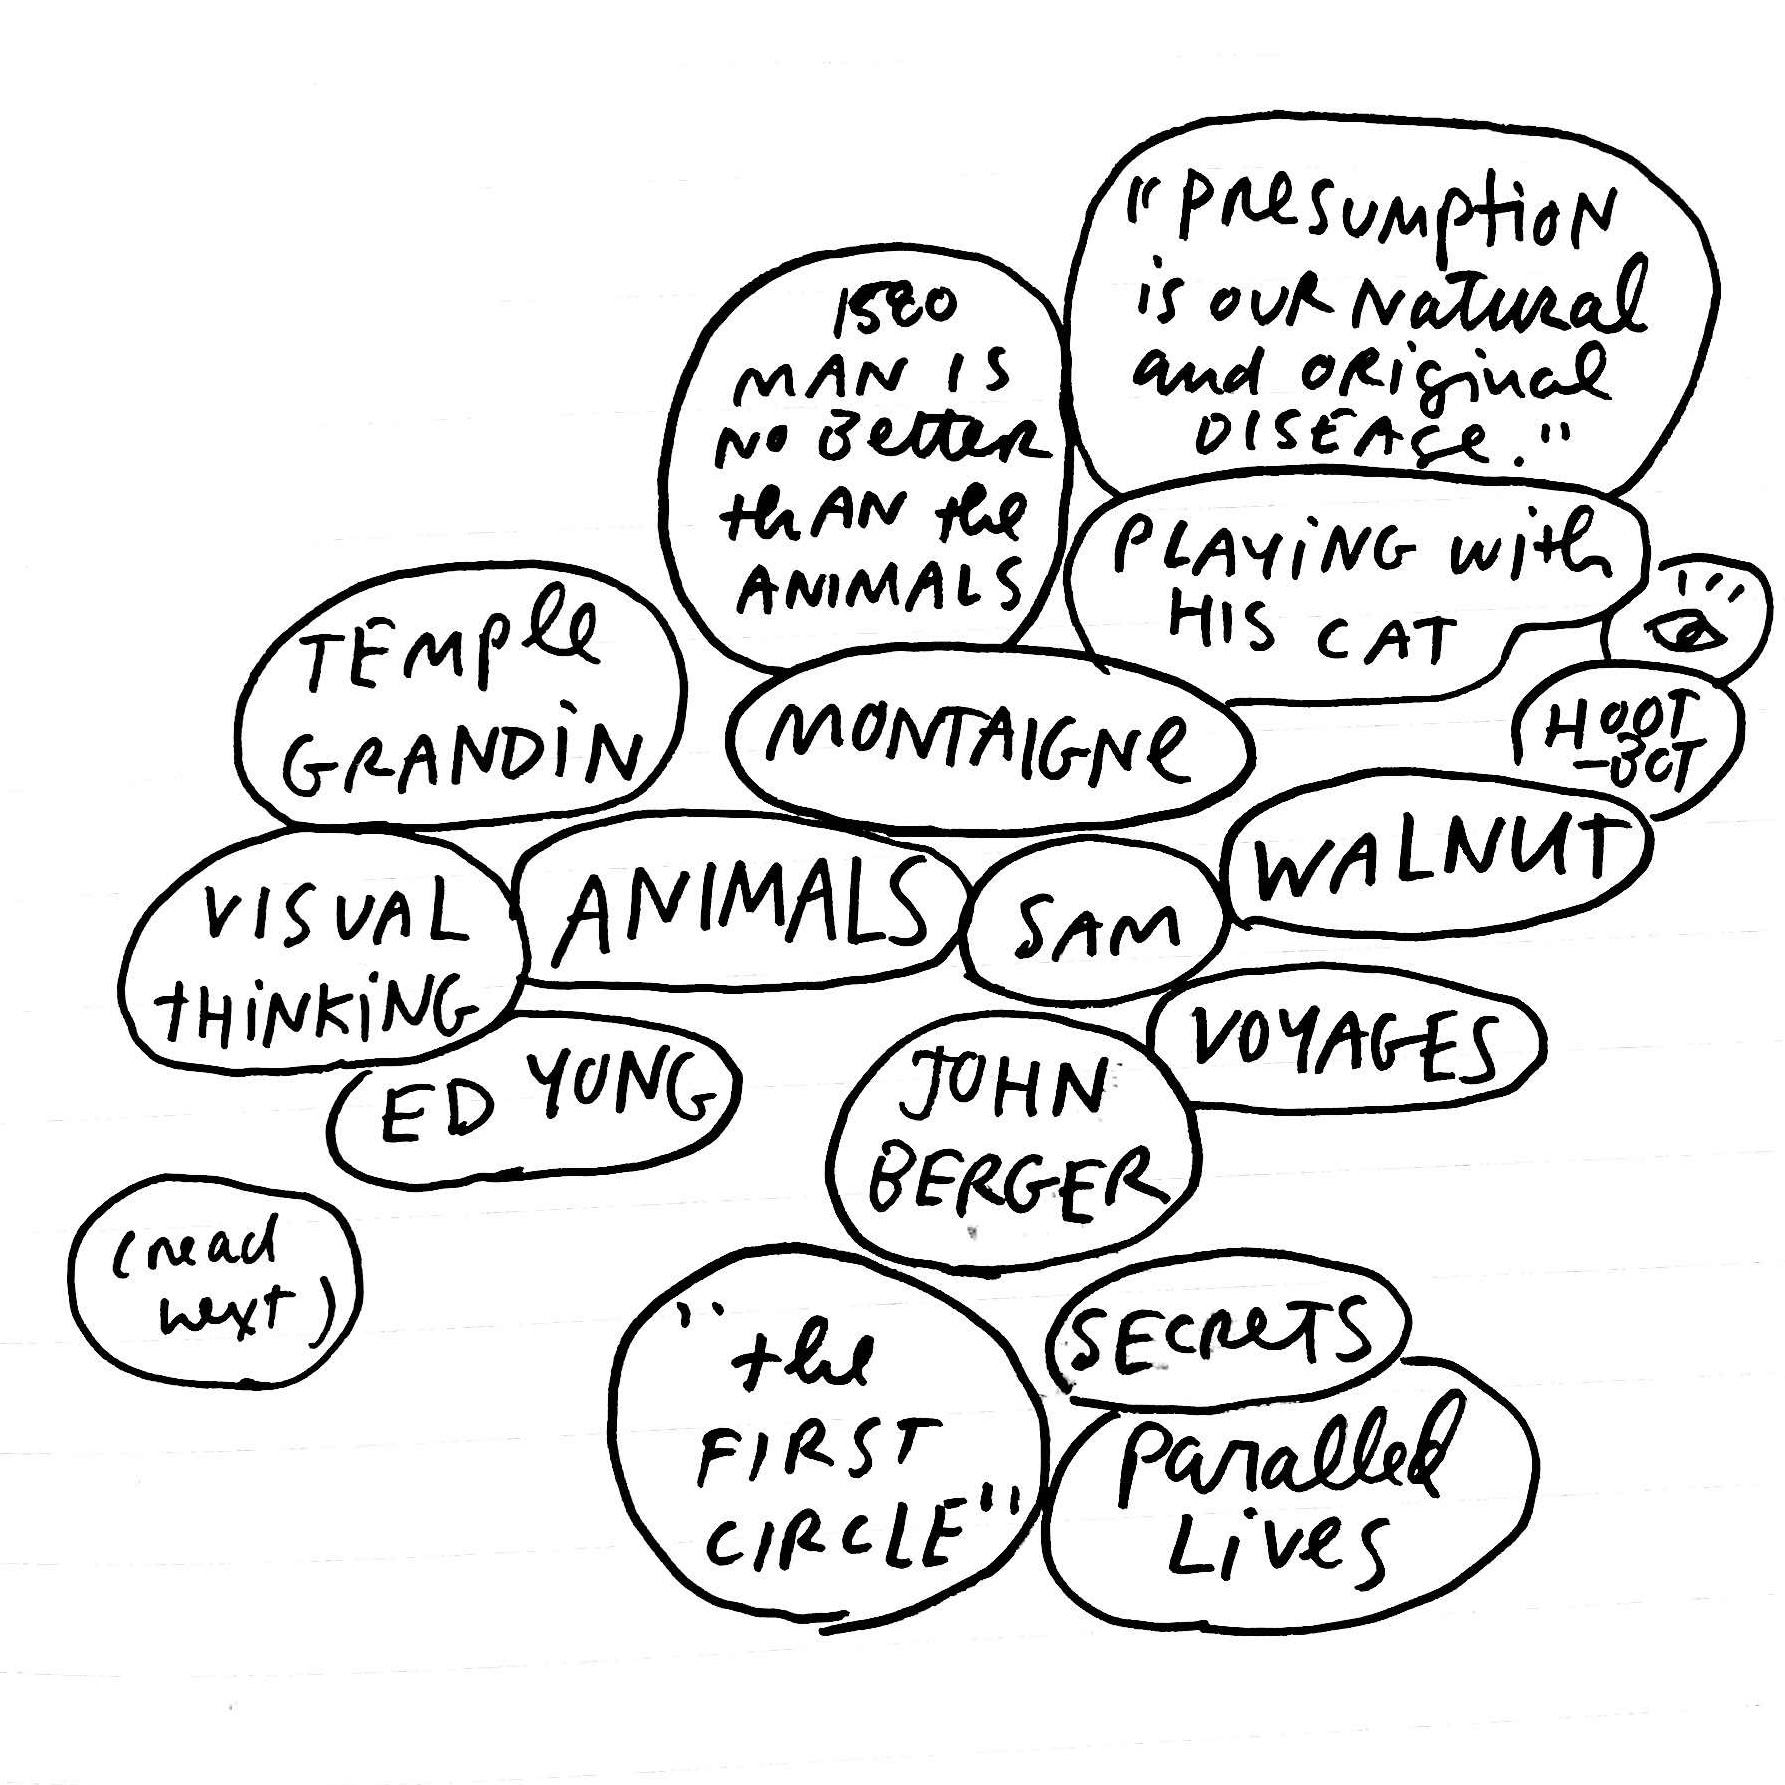 "PRESUMPTION
is OUR Natural
and ORiginal
DISEASe."
1580
MAN IS
NO Better
thAN the
ANIMALS
PLAYiNG with
HIS CAT
TEMple
GRANDiN
MONTAIGNe
HOOT
-BOT
VISUAL
tHiNKiNG
ANIMALS
SAM
WALNUT
ED YONG
JOHN
BERGER
VOYAGES
(read
next)
"the
FIRST
CIRCLE"
SECReTS
Parallel
Lives